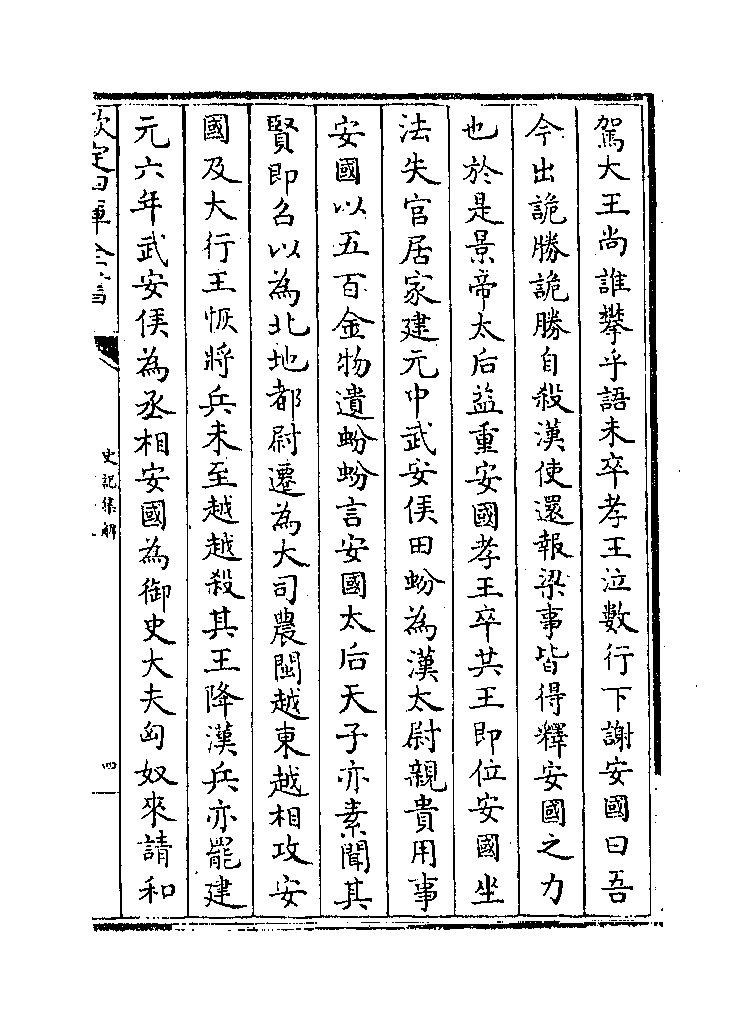 駕大王尚誰攀乎語未卒孝王泣數行下謝安國曰吾
今出詭勝詭勝自殺漢使還報梁事皆得釋安國之力
也於是景帝太后益重安國孝王卒共王即位安國坐
法失官居家建元中武安侯田蚡為漢太尉親貴用事
安國以五百金物遺蚡蚡言安國太后天子亦素聞其
賢即召以為北地都尉遷為大司農閩越東越相攻安
國及大行王恢將兵未至越越殺其王降漢兵亦罷建
元六年武安侯為丞相安國為御史大夫匈奴來請和
欽定四庫全書
史記集解
四